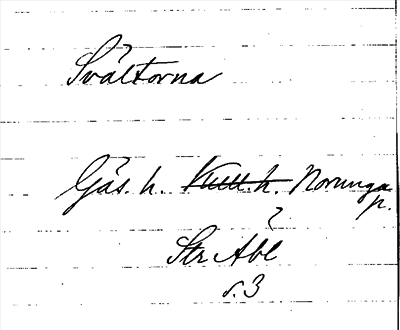 Svältorna
Gäs. h. Kull. h. Norunga
p.
?
Str Abl
s. 3